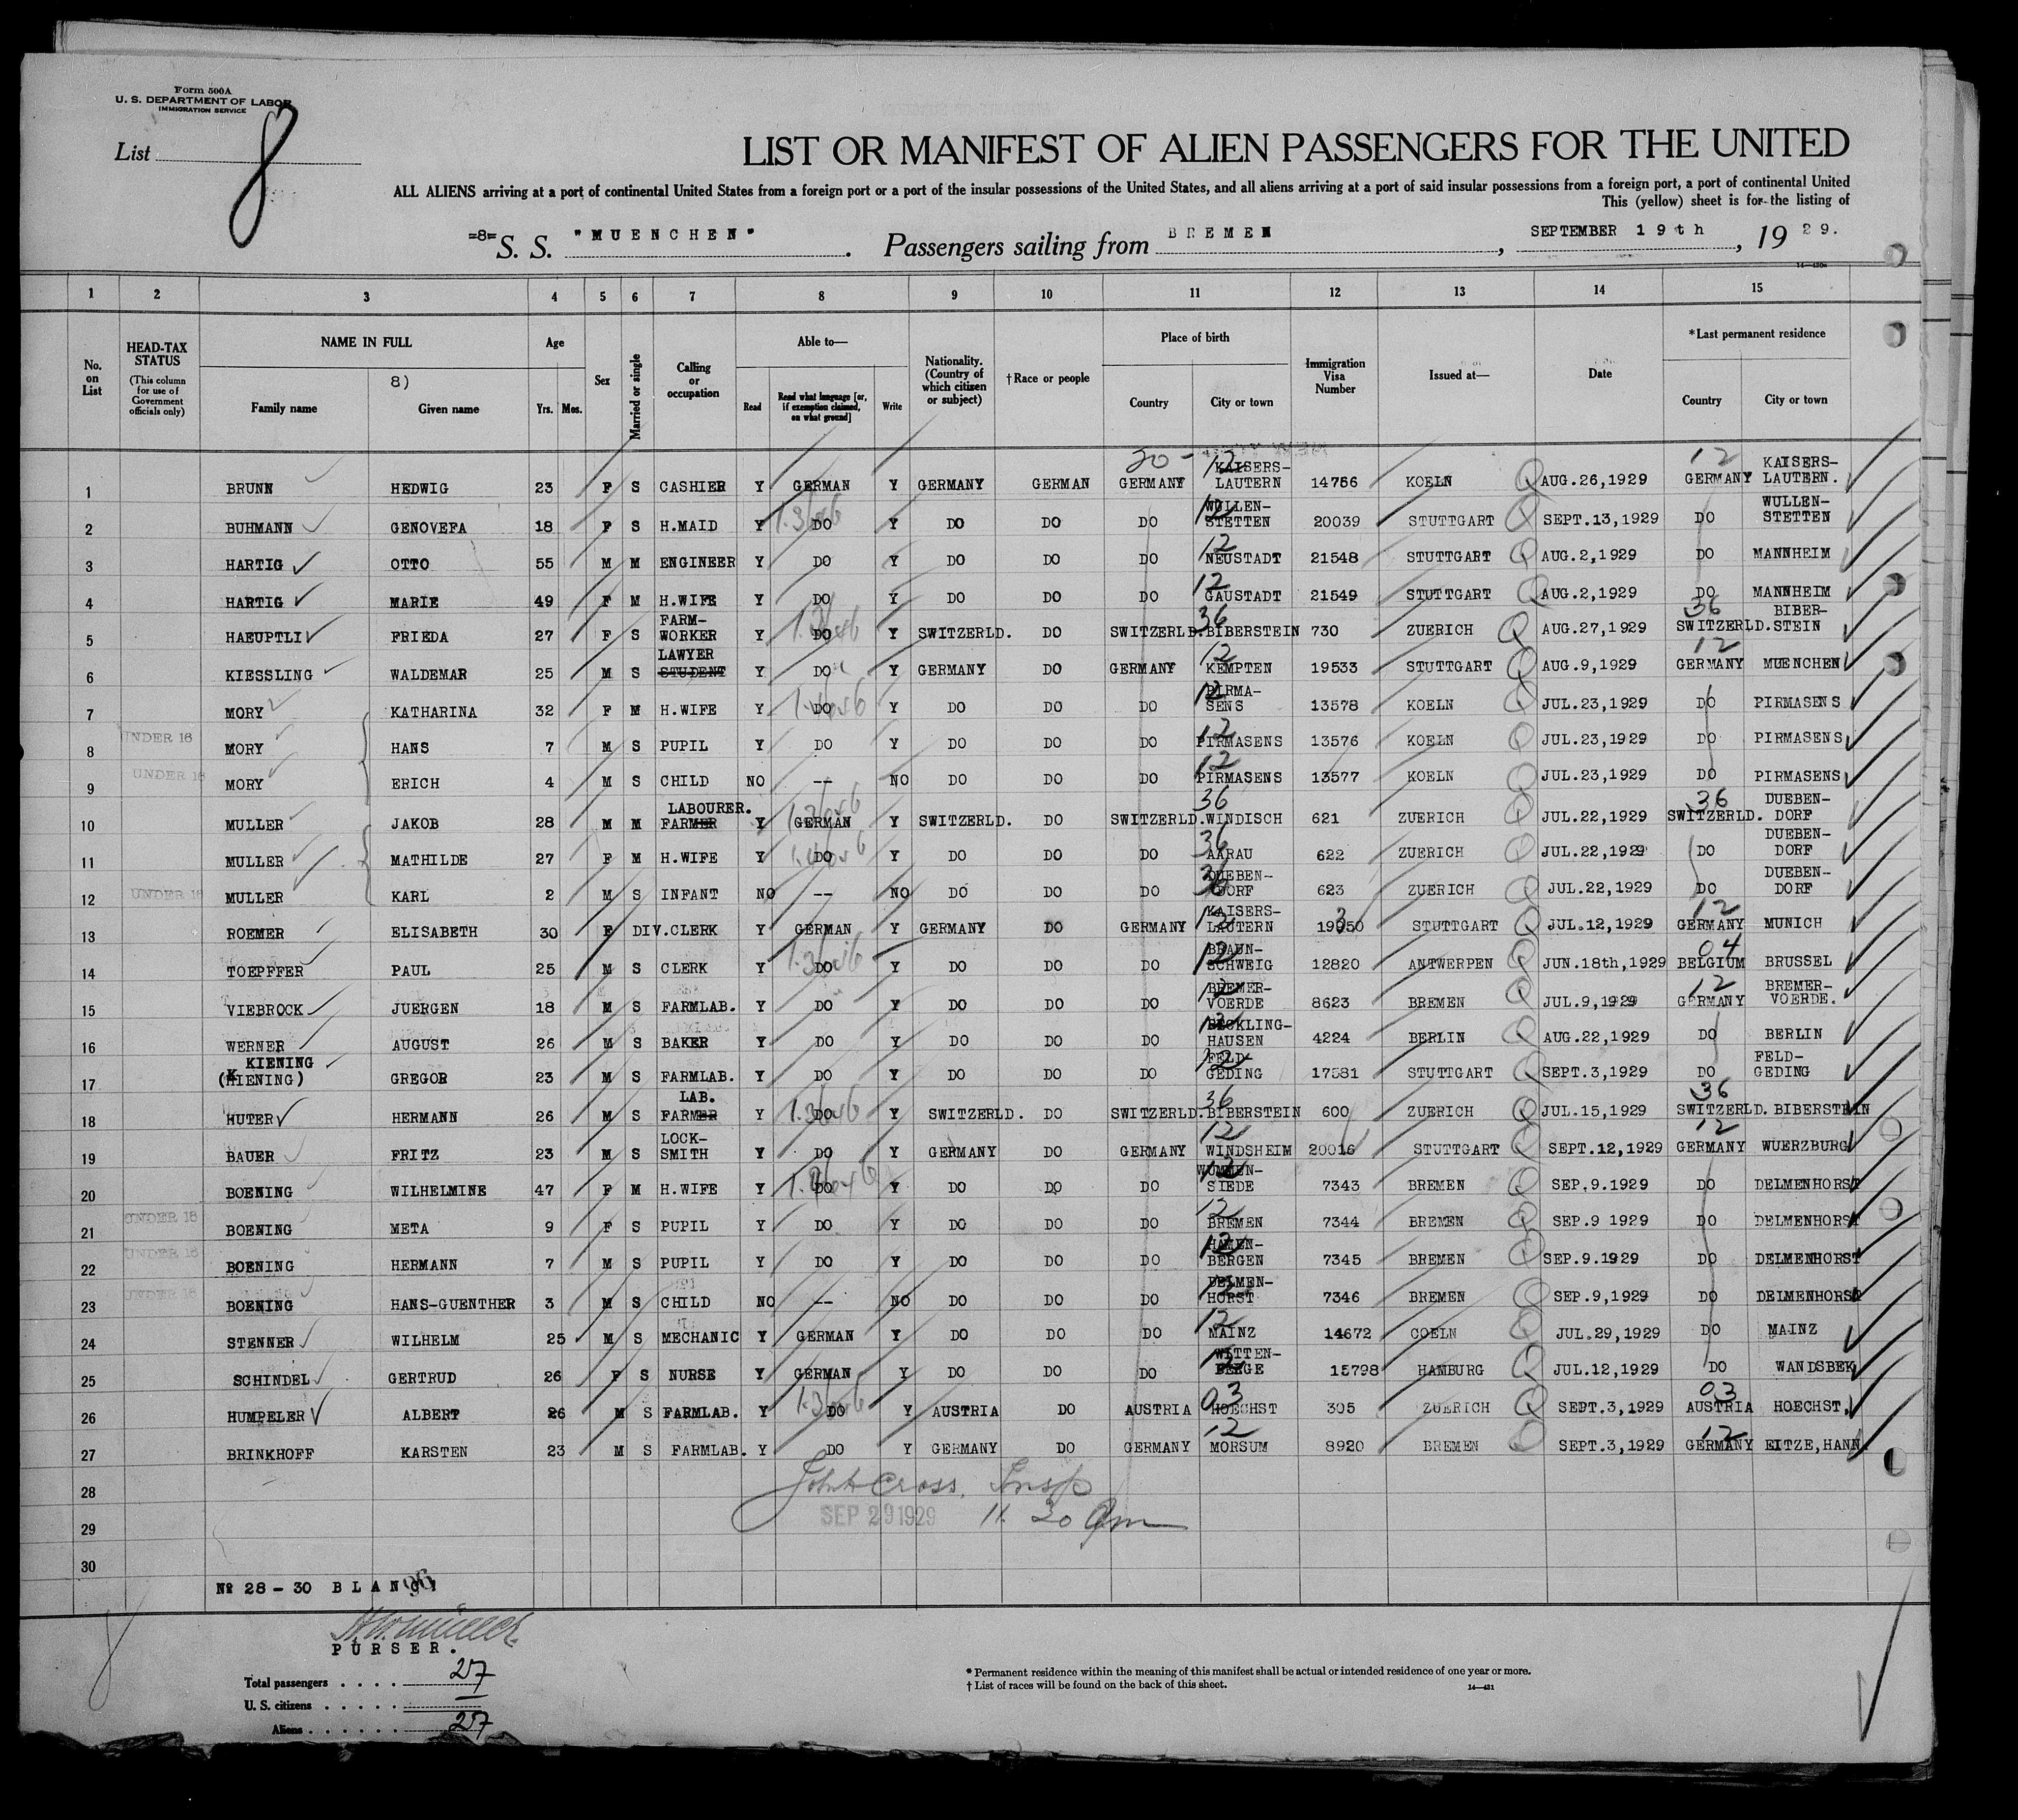 Form 500A
U. S. DEPARTMENT OF LABOR
IMMIGRATION SERVICE
List 8
LIST OR MANIFEST OF ALIEN PASSENGERS FOR THE UNITED
ALL ALIENS arriving at a port of continental United States from a foreign port or a port of the insular possessions of the United States, and all aliens arriving at a port of said insular possessions from a foreign port, a port of continental United
This (yellow) sheet is for the listing of
=8= S. S. "MUENCHEN". Passengers sailing from BREMEN, SEPTEMBER 19th, 1929.
1 2 3 4 5 6 7 8 9 10 11 12 13 14 15
No. on List
HEAD-TAX STATUS (This column for use of Government officials only)
NAME IN FULL
8)
Family name Given name
Age Yrs. Mos.
Sex
Married or single
Calling or occupation
Able to—
Read Read what language [or, if exemption claimed, on what ground] Write
Nationality. (Country of which citizen or subject)
†Race or people
Place of birth
Country City or town
Immigration Visa Number
Issued at—
Date
*Last permanent residence
Country City or town
1 BRUNN HEDWIG 23 F S CASHIER Y GERMAN Y GERMANY GERMAN GERMANY KAISERS-LAUTERN 14766 KOELN AUG.26,1929 GERMANY KAISERS-LAUTERN.
2 BUHMANN GENOVEFA 18 F S H.MAID Y DO Y DO DO DO WULLEN-STETTEN 20039 STUTTGART SEPT.13,1929 DO WULLEN-STETTEN
3 HARTIG OTTO 55 M M ENGINEER Y DO Y DO DO DO NEUSTADT 21548 STUTTGART AUG.2,1929 DO MANNHEIM
4 HARTIG MARIE 49 F M H.WIFE Y DO Y DO DO DO GAUSTADT 21549 STUTTGART AUG.2,1929 DO MANNHEIM
5 HAEUPTLI FRIEDA 27 F S FARM-WORKER Y DO Y SWITZERLD. DO SWITZERLD. BIBERSTEIN 730 ZUERICH AUG.27,1929 SWITZERLD. BIBER-STEIN
6 KIESSLING WALDEMAR 25 M S LAWYER STUDENT Y DO Y GERMANY DO GERMANY KEMPTEN 19533 STUTTGART AUG.9,1929 GERMANY MUENCHEN
7 MORY KATHARINA 32 F M H.WIFE Y DO Y DO DO DO PIRMA-SENS 13578 KOELN JUL.23,1929 DO PIRMASENS
8 UNDER 16 MORY HANS 7 M S PUPIL Y DO Y DO DO DO PIRMASENS 13576 KOELN JUL.23,1929 DO PIRMASENS
9 UNDER 16 MORY ERICH 4 M S CHILD NO -- NO DO DO DO PIRMASENS 13577 KOELN JUL.23,1929 DO PIRMASENS
10 MULLER JAKOB 28 M M LABOURER. FARMER Y GERMAN Y SWITZERLD. DO SWITZERLD. WINDISCH 621 ZUERICH JUL.22,1929 SWITZERLD. DUEBEN-DORF
11 MULLER MATHILDE 27 F M H.WIFE Y DO Y DO DO DO AARAU 622 ZUERICH JUL.22,1929 DO DUEBEN-DORF
12 UNDER 16 MULLER KARL 2 M S INFANT NO -- NO DO DO DO DUEBEN-DORF 623 ZUERICH JUL.22,1929 DO DUEBEN-DORF
13 ROEMER ELISABETH 30 F DIV. CLERK Y GERMAN Y GERMANY DO GERMANY KAISERS-LAUTERN STUTTGART JUL.12,1929 GERMANY MUNICH
14 TOEPFFER PAUL 25 M S CLERK Y DO Y DO DO DO BRAUN-SCHWEIG 12820 ANTWERPEN JUN.18th,1929 BELGIUM BRUSSEL
15 VIEBROCK JUERGEN 18 M S FARMLAB. Y DO Y DO DO DO BREMER-VOERDE 8623 BREMEN JUL.9,1929 GERMANY BREMER-VOERDE.
16 WERNER AUGUST 26 M S BAKER Y DO Y DO DO DO HAUSEN 4224 BERLIN AUG.22,1929 DO BERLIN
17 KIENING (KIENING) GREGOR 23 M S FARMLAB. Y DO Y DO DO DO FELD-GEDING 17581 STUTTGART SEPT.3,1929 DO FELD-GEDING
18 HUTER HERMANN 26 M S LAB. FARMER Y DO Y SWITZERLD. DO SWITZERLD. BIBERSTEIN 600 ZUERICH JUL.15,1929 SWITZERLD. BIBERSTEIN
19 BAUER FRITZ 23 M S LOCK-SMITH Y DO Y GERMANY DO GERMANY WINDSHEIM 20016 STUTTGART SEPT.12,1929 GERMANY WUERZBURG
20 BOENING WILHELMINE 47 F M H.WIFE Y DO Y DO DO DO SIEDE 7343 BREMEN SEP.9.1929 DO DELMENHORST
21 UNDER 16 BOENING META 9 F S PUPIL Y DO Y DO DO DO BREMEN 7344 BREMEN SEP.9 1929 DO DELMENHORST
22 UNDER 16 BOENING HERMANN 7 M S PUPIL Y DO Y DO DO DO BERGEN 7345 BREMEN SEP.9.1929 DO DELMENHORST
23 UNDER 16 BOENING HANS-GUENTHER 3 M S CHILD NO -- NO DO DO DO DELMEN-HORST 7346 BREMEN SEP.9,1929 DO DELMENHORST
24 STENNER WILHELM 25 M S MECHANIC Y GERMAN Y DO DO DO MAINZ 14672 COELN JUL.29,1929 DO MAINZ
25 SCHINDEL GERTRUD 26 F S NURSE Y GERMAN Y DO DO DO WITTEN-BERGE 15798 HAMBURG JUL.12,1929 DO WANDSBEK
26 HUMPELER ALBERT 26 M S FARMLAB. Y DO Y AUSTRIA DO AUSTRIA HOECHST 305 ZUERICH SEPT.3,1929 AUSTRIA HOECHST.
27 BRINKHOFF KARSTEN 23 M S FARMLAB. Y DO Y GERMANY DO GERMANY MORSUM 8920 BREMEN SEPT.3,1929 GERMANY EITZE,HANN.
28 John Cross, Insp
29 SEP 29 1929 11.30 am
30
№ 28 - 30 BLANK
PURSER.
Total passengers . . . . 27
U. S. citizens . . . . .
Aliens . . . . . . 27
* Permanent residence within the meaning of this manifest shall be actual or intended residence of one year or more.
† List of races will be found on the back of this sheet.
14—431